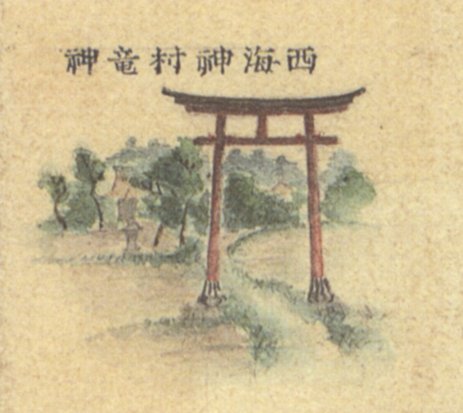 西海神村竜神